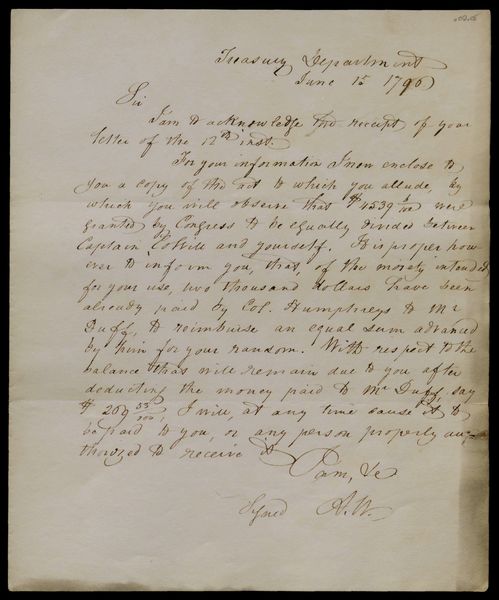 Treasury Department
June 15 1796
Sir
I am to acknowledge the receipt of your
letter of the 12th inst.
For your information I now enclose to
you a copy of the act to which you allude, by
which you will observe that $4539 /100 were
granted by Congress to be equally divided between
Captain and yourself. It is proper how-
ever to inform you, that, of the moiety intended
for your use, two thousand dollars have been
already paid by Col. Humphreys to Mr
Duff, to reimburse an equal sum advanced
by him for your ransom. With respect to the
balance that will remain due to you after
deducting the money paid to Mr Duff, say
$ /100, I will, at any time cause it to
be paid to you, or any person properly au-
thorized to receive it
I am, &c
Signed